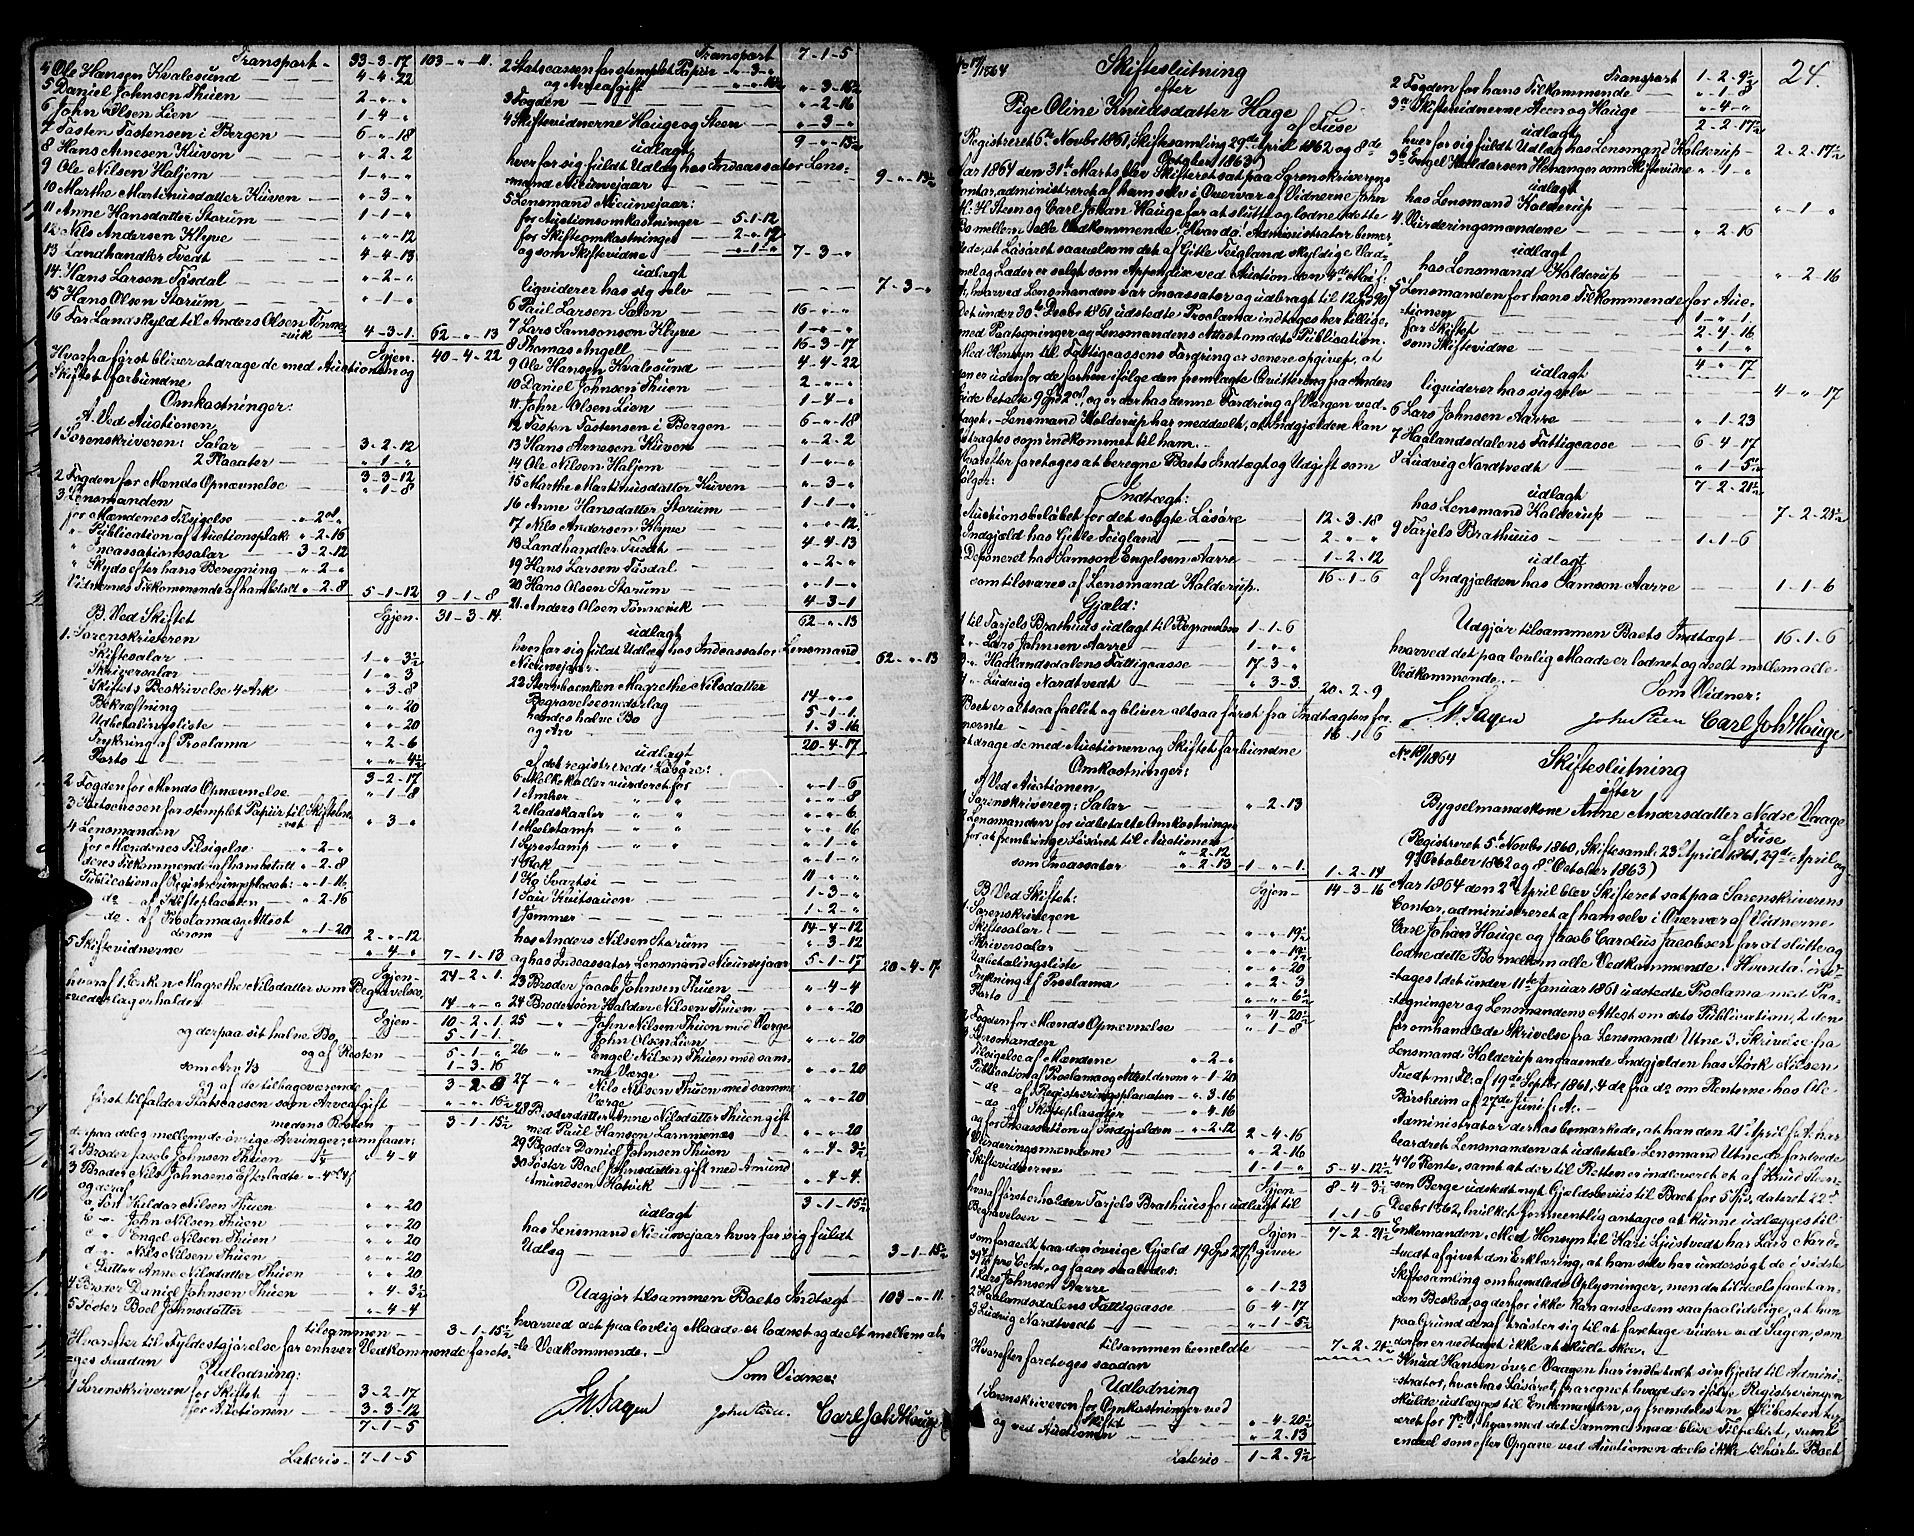 Transport - 33-3-17 103-"-11.
4 Ole Hansen Kvalesund — 4-4-22
5 Daniel Johnsen Thuen — 2-"-"
6 John Olsen Lien — 1-4-"
7 Tosten Tostensen i Bergen — 6-"-18
8 Hans Arnesen Kuven — "-2-2
9 Ole Nilsen Haljem — 1-"-"
10 Marthe Martinusdatter Kuven — "-3-"
11 Anne Hansdatter Storum — 1-1-"
12 Nils Andersen Klyve — "-"-12
13 Landhandler Tvedt — 4-4-13
14 Hans Larsen Tøsdal — "-2-"
15 Hans Olsen Storum — "-1-"
16 For Landskyld til Anders Olsen Tønne-
vik 4-3-1. 62-"-13
Igjen- 40-4-22
Hvorfra først bliver at drage de med Auctionen og
Skiftet forbundne
Omkostninger:
A. Ved Auctionen
1 Sorenskriveren: Salar — 3-2-12
2 Placater — "-1-"
3-3-12
2 Fogden for Mænds Opnævnelse — "-1-8
3 Lensmanden
for Mændenes Tilsigelse — "-2-"
" Publication af Auctionsplak: "-2-16
" Incassationssalar — 3-2-12
" Skyds efter hans Beregning — "-2-"
Vidnernes Tilkommende af ham betalt "-2-8 5-1-12 9-1-8
B. Ved Skiftet Igjen- 31-3-14.
1. Sorenskriveren
Skiftesalar — 1-"-3½
Skriversalær — 1-"-3
Skiftets Beskrivelse 4 Ark "-3-8
Bekræftning "-"-20
Udbetalingsliste — "-"-20
Trykning af Proclama — "-2-6
Porto — "-"-4½
3-2-17
2 Fogden for Mænds Opnævnelse — "-1-8
3 Statscassen for stemplet Papiir til Skifteslut-
net "-3-"
4 Lensmanden
for Mændenes Tilsigelse — "-2-"
deres Tilkommende af ham betalt "-2-8
Publication af Registreringsplacat: "-1-16
" do - af Skifteplacaten — "-2-16
- do - af Proclama og Attest
derom "-1-20 2-"-12
5 Skiftevidnerne — "-4-" 7-1-13
Igjen- 24-2-1.
hvoraf 1. Enken Magrethe Nilsdatter som Begravelses
vederlag erholder 14-"-"
Igjen- 10-2-1.
og derpaa sit halve Bo 5-1-1.
og af Resten 5-1-"
som Arv 1/3 1-3-16
og af de tilbageværende 3-2-8
først tilfalder Statscassen som Arveafgift "-"-16½
medens Resten 3-1-15½
de paa deles mellem de øvrige Arvinger, som faaer:
2 Broder Jacob Johnsen Thuen "-4-4
3 Broder Nils Johnsens Efterladte
og deraf
a, Søn Haldor Nilsen Thuen "-"-20
b " - John Nilsen Thuen "-"-20
c, " Engel Nilsen Thuen "-"-20
d " Nils Nilsen Thuen "-"-20
e Datter Anne Nilsdatter Thuen — "-"-20
4 Broder Daniel Johnsen Thuen "-4-3½
5 Søster Boel Johnsdatter "-4-4
tilsammen — 3-1-15½
Hvorefter til Fyldestgjørelse for enhver Vedkommende foreta-
ges saadan
Udlodning:
1 Sorenskriveren for Skiftet 3-2-17
for Auctionen 3-3-12
7-1-5
Lateris- 7-1-5
Transport 7-1-5
2 Statscassen for stemplet Papiir "-3-"
og Arveafgift "-"-16½ "-3-16½
3 Fogden — "-2-16
4 Skiftevidnerne Hauge og Steen "-3-"
9-"-13½
udlagt
hver for sig fuldt Udlæg hos Incassator Lens-
mand Nieuwejaar — 9-"-13½
5 Lensmand Nieuwejaar:
for Auctionsomkostninger 5-1-12
for Skifteomkostninger 2-"-12
og som Skiftevidne "-1-" 7-3-"
udlagt
liquiderer hos sig selv — 7-3-"
6 Paul Larsen Salen 16-"-"
7 Lars Samsonsen Klyve 1-"-"
8 Thomas Angell — 16-3-17
9 Ole Hansen Kvalesund — 4-4-22
10 Daniel Johnsen Thuen — 2-"-"
11 John Olsen Lien — 1-4-"
12 Tosten Tostensen i Bergen 6-"-18
13 Hans Arnesen Kuven "-2-2
14 Ole Nilsen Haljem — 1-"-"
15 Marthe Martinusdatter Kuven — "-3-"
16 Anne Hansdatter Storum 1-1-"
17 Nils Andersen Klyve — "-"-12
18 Landhandler Tvedt — 4-4-13
19 Hans Larsen Tøsdal — "-2-"
20 Hans Olsen Storum — "-1-"
21. Anders Olsen Tønnevik — 4-3-1
62-"-13
udlagt
hver for sig fuldt Udlæg hos Incassator Lensmand
Nieuwejaar — 62-"-13
22 Sterboenken Magrethe Nilsdatter
Begravelsesvederlag 14-"-"
hendes halve Bo 5-1-1.
og Arv 1-3-16
20-4-17
udlagt
af det registrerede Løsøre:
6 Melkekoller vurderet for "-1-6
1 Amber — " " "-"-8
2 Madskaaler — " " "-"-6
1 Meelstamp — " " "-"-16
1 Syrestamp — " " "-1-"
1 Rok — "-1-"
1 Ko Svartsi — 11-"-"
1 Sau Kvitsauen — 1-3-"
1 Jømmer — 1-2-"
14-4-12
hos Anders Nilsen Storum "-3-12
og hos Incassator Lensmand Nieuwejaar 5-1-17
20-4-17
23 Broder Jacob Johnsen Thuen "-4-4
24 Brodersøn Haldor Nilsen Thuen "-"-20
25 — " — John Nilsen Thuen med Værge
John Olsen Lien "-"-20
26 — " Engel Nilsen Thuen med sam-
me Værge "-"-20
27 — " Nils Nilsen Thuen med samme
Værge "-"-20
28 Broderdatter Anne Nilsdatter Thuen gift
med Paul Hansen Lammenæs "-"-20
29 Broder Daniel Johnsen Thuen "-4-3½
30 Søster Boel Johnsdatter gift med Amund
Amundsen Hatvik "-4-4
3-1-15½
udlagt
hos Lensmand Nieuwejaar hver for sig fuldt
Udlæg — 3-1-15½
Udgjør tilsammen Boets Indtægt- 103-"-11.
hvorved det paa lovlig Maade er lodnet og deelt mellem al-
le Vedkommende. —
Som Vidner:
John Steen. Carl Joh Houge
17/1864 Skifteslutning
efter
Pige Oline Knudsdatter Hage
af Fuse
Registreret 6te Novbr 1861, Skiftesamling 29de April 1862 og 8de
October 1863)
Aar 1864 den 31te Marts blev Skifteret sat paa Sorenskriverens
Contor, administreret af ham selv i Overvær af Vidnerne John
H. Steen og Carl Johan Hauge for at slutte og lodne dette
Bo mellem alle Vedkommende. Hvorda: Administrator bemær-
kede, at Løsøret saavelsom det af Gitle Teigland skyldige Vad-
mel og Læder er solgt som Appendix ved Auction den
hvorved Lensmanden var Incassator og udbragt til 12
Det under 30te Decbr 1861 udstedte Proclama indtages hertillige
med Paategninger og Lensmandens Attest om dets Publication.
Med Hensyn til Fattigcassens Fordring er senere opgivet, at
den er udenfor de forhen ifølge den fremlagte Qvittering fra Anders
betalte 9 Spd 2 ort, og er der hos denne Fordring af Værgen ved-
taget. - Lensmand Holderup har meddeelt, at Indgjelden kan
betragtes som indkommet til ham.
Hvorefter foretoges at beregne Boets Indtægt og Udgift som
følger:
Indtægt:
Auctionsbeløbet for det solgte Løsøre 12-3-18
Indgjeld hos Gitle Teigland 2-"-"
Deponeret hos Samson Engelsen Aarre 1-2-12
som tilsvares af Lensmand Holderup. 16-1-6
Gjæld:
1 til Torjels Brathuus udlagt til Begravelsen 1-1-6
2 " Lars Johnsen Aarre — 1-"-"
3 " Haalandsdalens Fattigcasse 17-3-"
4 " Ludvig Nordtvedt — "-3-3. 20-2-9
Boet er altsaa fallit og bliver altsaa først fra Indtægten for-
nævnte — 16-1-6
at drage de med Auctionen og Skiftet forbundne
Omkostninger:
A Ved Auctionen
1 Sorenskriveren: Salar — "-2-13
2 Lensmanden for udbetalte Omkostninger
for at frembringe Løsøret til Auctionen
"-2-12
som Incassator "-2-13 1-"-1. 1-2-14
B. Ved Skiftet: Igjen- 14-3-16
1 Sorenskriveren
Skiftesalar "-"-19½
Skriversalar — "-"-19½
Udbetalingsliste "-"-20
Trykning af Proclama "-2-3
Porto — "-"-6½
"-4-20½
2 Fogden for Mænds Opnævnelse "-1-8
3 Lensmanden
Tilsigelse af Mændene "-2-"
Publication af Proclama og Attest derom "-1-20
- do - af Registreringsplacaten - "-3-16
- do - af Skifteplacater "-4-16
og for Incassation af Indgjelden "-2-12 2-4-16
4 Vurderingsmændene — "-2-16
Skiftevidnerne — 1-1-" 5-4-12½
Igjen- 8-4-3½
hvoraf først erholder Torjels Brathuus for udlagt til
Begravelsen 1-1-6
Igjen- 7-2-21½
som fordeelt paa den øvrige Gjæld 19 Spd 27 s giver
pro Cent, og faaer saaledes:
1 Lars Johnsen Aarre "-1-23
2 Haalandsdalens Fattigcasse 6-4-17
3 Ludvig Nordtvedt "-1-5½
tilsammen bemeldte 7-2-21½
Hvorefter foretoges saadan
Udlodning
1 Sorenskriveren for Omkostninger ved
Skiftet "-4-20½
og ved Auctionen "-2-13
Lateris- 1-2-9½
Transport 1-2-9½ 24.
2 Fogden for hans Tilkommende "-1-8
3a Skiftevidnerne Steen og Hauge "-4-"
udlagt 2-2-17½
hver for sig fuldt Udlæg hos Lensmand Holderup 2-2-17½
3b Engel Haldorsen Henanger som Skiftevidne "-1-"
udlagt
hos Lensmand Holderup — "-1-"
4 Vurderingsmændene "-2-16
udlagt
hos Lensmand Holderup "-2-16
5 Lensmanden for hans Tilkommende for Auc-
tionen 1-"-1.
for Skiftet 2-4-16
som Skiftevidne "-1-"
4-"-17
udlagt
liquiderer hos sig selv 4-"-17
6 Lars Johnsen Aarre "-1-23
7 Haalandsdalens Fattigcasse 6-4-17
8 Ludvig Nordtvedt "-1-5½
7-2-21½
udlagt
hos Lensmand Holderup — 7-2-21½
9 Torjels Brathuus — 1-1-6
udlagt
af Indgjelden hos Samson Aarre 1-1-6
Udgjør tilsammen Boets Indtægt — 16-1-6
hvorved det paa lovlig Maade er lodnet og deelt mellem alle
Vedkommende. —
Som Vidner:
John Steen Carl Joh Houge
No 18/1864 Skifteslutning
efter
Bygselmandskone Anne Andersdatter Nedre Vaage
af Fuse
(Registreret 5te Novbr 1860, Skiftesaml: 23de April 1861, 29de April og
9de October 1862 og 8de October 1863)
Aar 1864 den 2den April blev Skifteret sat paa Sorenskriverens
Contor, administreret af ham selv i Overvær af Vidnerne
Carl Johan Hauge og Jacob Carolus Jacobsen for at slutte og
lodne dette Bo mellem alle Vedkommende. Hvorda: ind-
tages 1. det under 11te Januar 1861 udstedte Proclama med Paa-
tegninger og Lensmandens Attest om dets Publication, 2. den
foromhandlede Skrivelse fra Lensmand Utne 3. Skrivelse fra
Lensmand Holderup angaaende Indgjelden hos Størk Nilsen
Tvedt m: Fl: af 19de Septbr 1861, 4. do fra do om Renterne hos Ole
Børsheim af 27de Juni f: A: -
Administrator derhos bemærkede, at han den 21de April f: A: har
beordret Lensmanden at udbetale Lensmand Utne de fordrede
4% Rente, samt at der til Retten er indleveret et af Knud Steen-
sen Berge udstedt nyt Gjeldsbeviis til Boet for 5 Spd, dateret 22de
Decbr 1862, hvilket formentlig antages at kunne udlægges til
Enkemanden. Med Hensyn til Kari Kjøstvedt har Lars Nord-
tvedt afgivet den Erklæring, at han selv har undersøgt de i sidste
Skiftesamling omhandlede Oplysninger, men da tildeels faaet an-
den Besked, og derfor ikke kan ansee dem saa paalidelige, at han
paa Grund deraf trøster sig til at foretage videre ved Sagen, som
derfor er vedtaget ikke at skulle skee. -
Knud Hansen øvre Vaagen har indbetalt sin Gjeld til Admini-
strator, hvorhos Løsøret, fraregnet hvad der ifølge Registreringen
skulde udlægges til Enkemanden, og fremdeles en Slibesteen tax-
eret for
endeel som efter Opgave ved Auctionen deels ikke tilhørte Boet